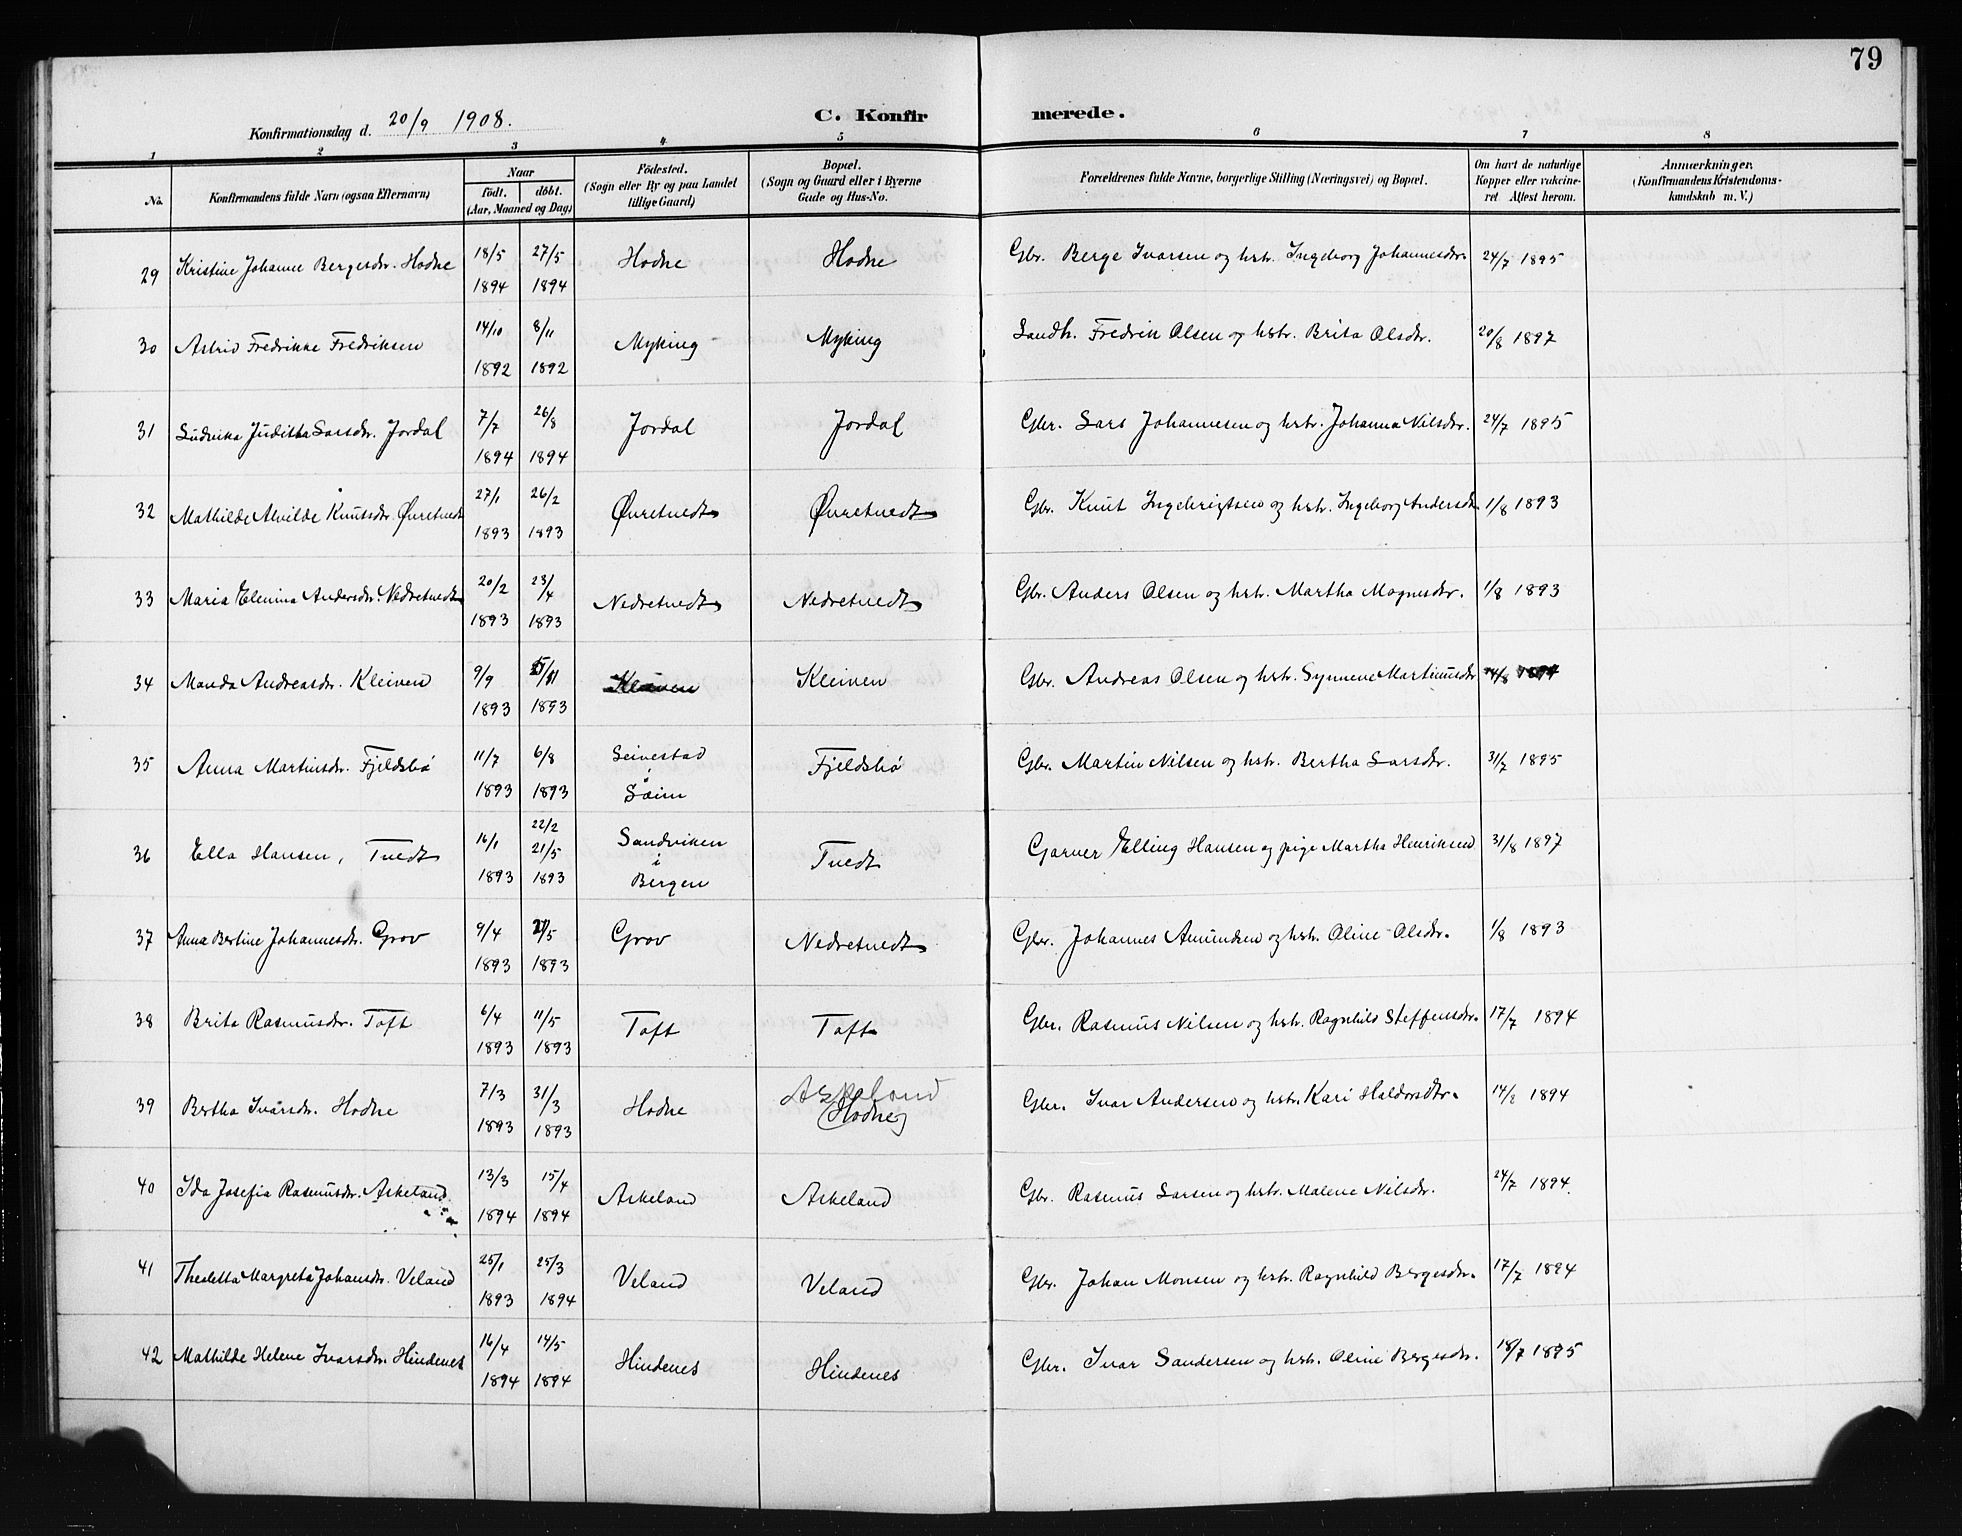 79
Konfirmationsdag d. 20/9 1908.
C. Konfirmerede.
1 2 3 4 5 6 7 8
No.
Konfirmandens fulde Navn (ogsaa Efternavn)
Naar
født. døbt.
(Aar, Maaned og Dag)
Fødested.
(Sogn eller By og paa Landet
tillige Gaard)
Bopæl.
(Sogn og Gaard eller i Byerne
Gade og Hus-No.
Forældrenes fulde Navne, borgerlige Stilling (Næringsvei) og Bopæl.
Om havt de naturlige
Kopper eller vakcine-
ret Attest herom.
Anmærkninger.
(Konfirmandens Kristendoms-
kundskab m. V.)
29 Kristine Johanne Bergesdr. Hodne 18/5 1894 27/5 1894 Hodne Hodne Gbr. Berge Ivarsen og hstr. Ingeborg Johannesdr. 24/7 1895
30 Astrid Fredrikke Fredriksen 14/10 1892 8/11 1892 Myking Myking Landh. Fredrik Olsen og hstr. Brita Olsdr. 20/8 1897
31 Ludvika Juditha Larsdr. Jordal 7/7 1894 26/8 1894 Jordal Jordal Gbr. Lars Johannesen og hstr. Johanna Nilsdr. 24/7 1895
32 Mathilde Alvilde Knutsdr. Øvretvedt 27/1 1893 26/2 1893 Øvretvedt Øvretvedt Gbr. Knut Ingebrigtsen og hstr. Ingeborg Andersdr. 1/8 1893
33 Maria Elenina Andersdr. Nedretvedt 20/2 1893 23/4 1893 Nedretvedt Nedretvedt Gbr. Anders Olsen og hstr. Martha Magnesdr. 1/8 1893
34 Manda Andreasdr. Kleiven 9/9 1893 5/11 1893 Kleiven Kleiven Gbr. Andreas Olsen og hstr. Synneve Martinusdr. 14/8 1894
35 Anna Martinsdr. Fjeldsbø 11/7 1893 6/8 1893 Seivestad i Sæim Fjeldsbø Gbr. Martin Nilsen og hstr. Bertha Larsdr. 31/7 1895
36 Ella Hansen, Tvedt 16/1 1893 22/2 21/5 1893 Sandviken i Bergen Tvedt Garver Elling Hansen og pige Martha Henriksen 31/8 1897
37 Anna Bertine Johannesdr. Grov 9/4 1893 21/5 1893 Grov Nedretvedt Gbr. Johannes Amundsen og hstr. Oline Olsdr. 1/8 1893
38 Brita Rasmusdr. Toft 6/4 1893 11/5 1893 Toft Toft Gbr. Rasmus Nilsen og hstr. Ragnhild Steffensdr. 17/7 1894
39 Bertha Ivarsdr. Hodne 7/3 1893 31/3 1893 Hodne Askeland (Hodne) Gbr. Ivar Andersen og hstr. Kari Haldorsdtr. 14/8 1894
40 Ida Josefia Rasmusdr. Askeland 13/3 1894 15/4 1894 Askeland Askeland Gbr. Rasmus Larsen og hstr. Malene Nilsdr. 24/7 1894.
41 Thedetta Margreta Johansdr. Veland 25/1 1893 25/3 1894 Veland Veland Gbr. Johan Monsen og hstr. Ragnhild Bergesdr. 17/7 1894
42 Mathilde Helene Ivarsdr. Hindenes 16/4 1894 14/5 1894 Hindenes Hindenes Gbr. Ivar Sandersen og hstr. Oline Bergesdr. 18/7 1895